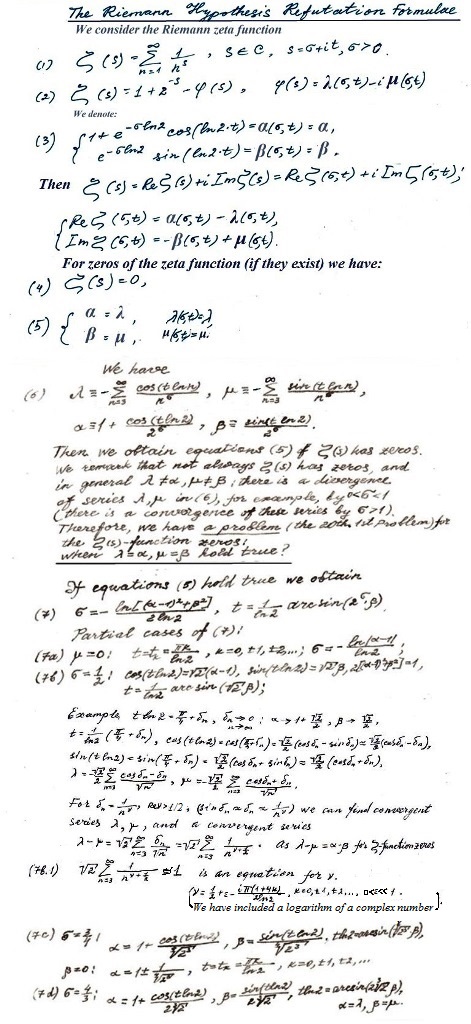 The Riemann Hypothesis Refutation Formulae
We consider the Riemann zeta function
(1) ζ(s) = Σ_{n=1}^{∞} 1/n^s , s∈C, s=σ+it, σ>0.
(2) ζ(s) = 1+2^{-s} - φ(s), φ(s)=λ(σ,t)-iμ(σ,t)
We denote:
(3) { 1+e^{-σln2} cos(ln2·t) = α(σ,t) = α,
e^{-σln2} sin(ln2·t) = β(σ,t) = β.
Then ζ(s) = Re ζ(s)+i Im ζ(s) = Re ζ(σ,t)+i Im ζ(σ,t);
{ Re ζ(σ,t) = α(σ,t) - λ(σ,t),
Im ζ(σ,t) = -β(σ,t) + μ(σ,t).
For zeros of the zeta function (if they exist) we have:
(4) ζ(s)=0,
(5) { α = λ, λ(σ,t)=λ
β = μ, μ(σ,t)=μ.
We have
(6) λ = -Σ_{n=3}^{∞} cos(t ln n)/n^σ , μ = -Σ_{n=3}^{∞} sin(t ln n)/n^σ ,
α = 1 + cos(t ln 2)/2^σ , β = sin(t ln 2)/2^σ .
Then we obtain equations (5) if ζ(s) has zeros.
We remark that not always ζ(s) has zeros, and
in general λ≠α, μ≠β; there is a divergence
of series λ, μ in (6), for example, by 0<σ<1
(there is a convergence of these series by σ>1).
Therefore, we have a problem (the 20th, 1st Problem) for
the ζ(s)-function zeros:
when λ=α, μ=β hold true?
If equations (5) hold true we obtain
(7) σ = - ln[(α-1)²+β²]/2ln2 , t = 1/ln2 arcsin(2^σ·β).
Partial cases of (7):
(7a) μ=0: t=t_κ=πκ/ln2 , κ=0,±1,±2,...; σ=- ln|α-1|/ln2 ;
(7b) σ=1/2: cos(t ln2)=√2(α-1), sin(t ln2)=√2β, 2[(α-1)²+β²]=1,
t = 1/ln2 arcsin(√2β);
Example. t ln 2 = π/4 + δn, δn→0 n→∞ : α→1+√2/2, β→√2/2,
t = 1/ln2 (π/4+δn), cos(t ln2)=cos(π/4+δn)=√2/2(cosδn-sinδn)≈√2/2(cosδn-δn),
sin(t ln2)=sin(π/4+δn)=√2/2(cosδn+sinδn)≈√2/2(cosδn+δn),
λ=-√2/2 Σ_{n=3}^{∞} cosδn-δn/√n , μ=-√2/2 Σ_{n=3}^{∞} cosδn+δn/√n .
For δn = 1/n^ν, Reν>1/2, (sinδn≈δn≈1/n^ν) we can find convergent
series λ, μ, and a convergent series
λ-μ=√2 Σ_{n=3}^{∞} δn/√n = √2 Σ_{n=3}^{∞} 1/n^{ν+1/2} . As λ-μ=α-β for ζ-function zeros
(7b.1) √2 Σ_{n=3}^{∞} 1/n^{ν+1/2} ≈ 1 is an equation for ν.
We have included a logarithm of a complex number
(7c) σ=3/4: α=1+ cos(t ln2)/∜2³ , β= sin(t ln2)/∜2³ , t ln2=arcsin(∜2³ β),
β=0: α=1± 1/∜2³ , t=t_κ=πκ/ln2 , κ=0,±1,±2,...
(7d) σ=4/3: α=1+ cos(t ln2)/2∛2 , β= sin(t ln2)/2∛2 , t ln2=arcsin(2∛2 β),
α=λ, β=μ.